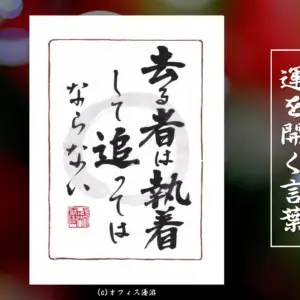 去る者は執着
して追っては
ならない
運を開く言葉
(c)オフィス湯沼